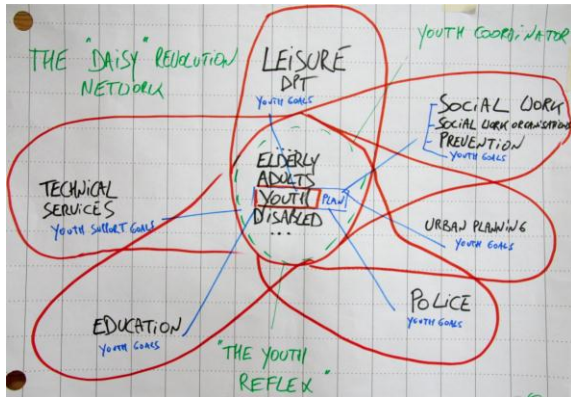 THE "DAISY" REVOLUTION
NETWORK
LEISURE
DPT
YOUTH GOALS
YOUTH COORDINATOR
SOCIAL WORK
SOCIAL WORK ORGANISATIONS
PREVENTION
YOUTH GOALS
ELDERLY
ADULTS
YOUTH PLAN
DISABLED
...
TECHNICAL
SERVICES
YOUTH SUPPORT GOALS
URBAN PLANNING
YOUTH GOALS
POLICE
YOUTH GOALS
EDUCATION
YOUTH GOALS
"THE YOUTH
REFLEX"